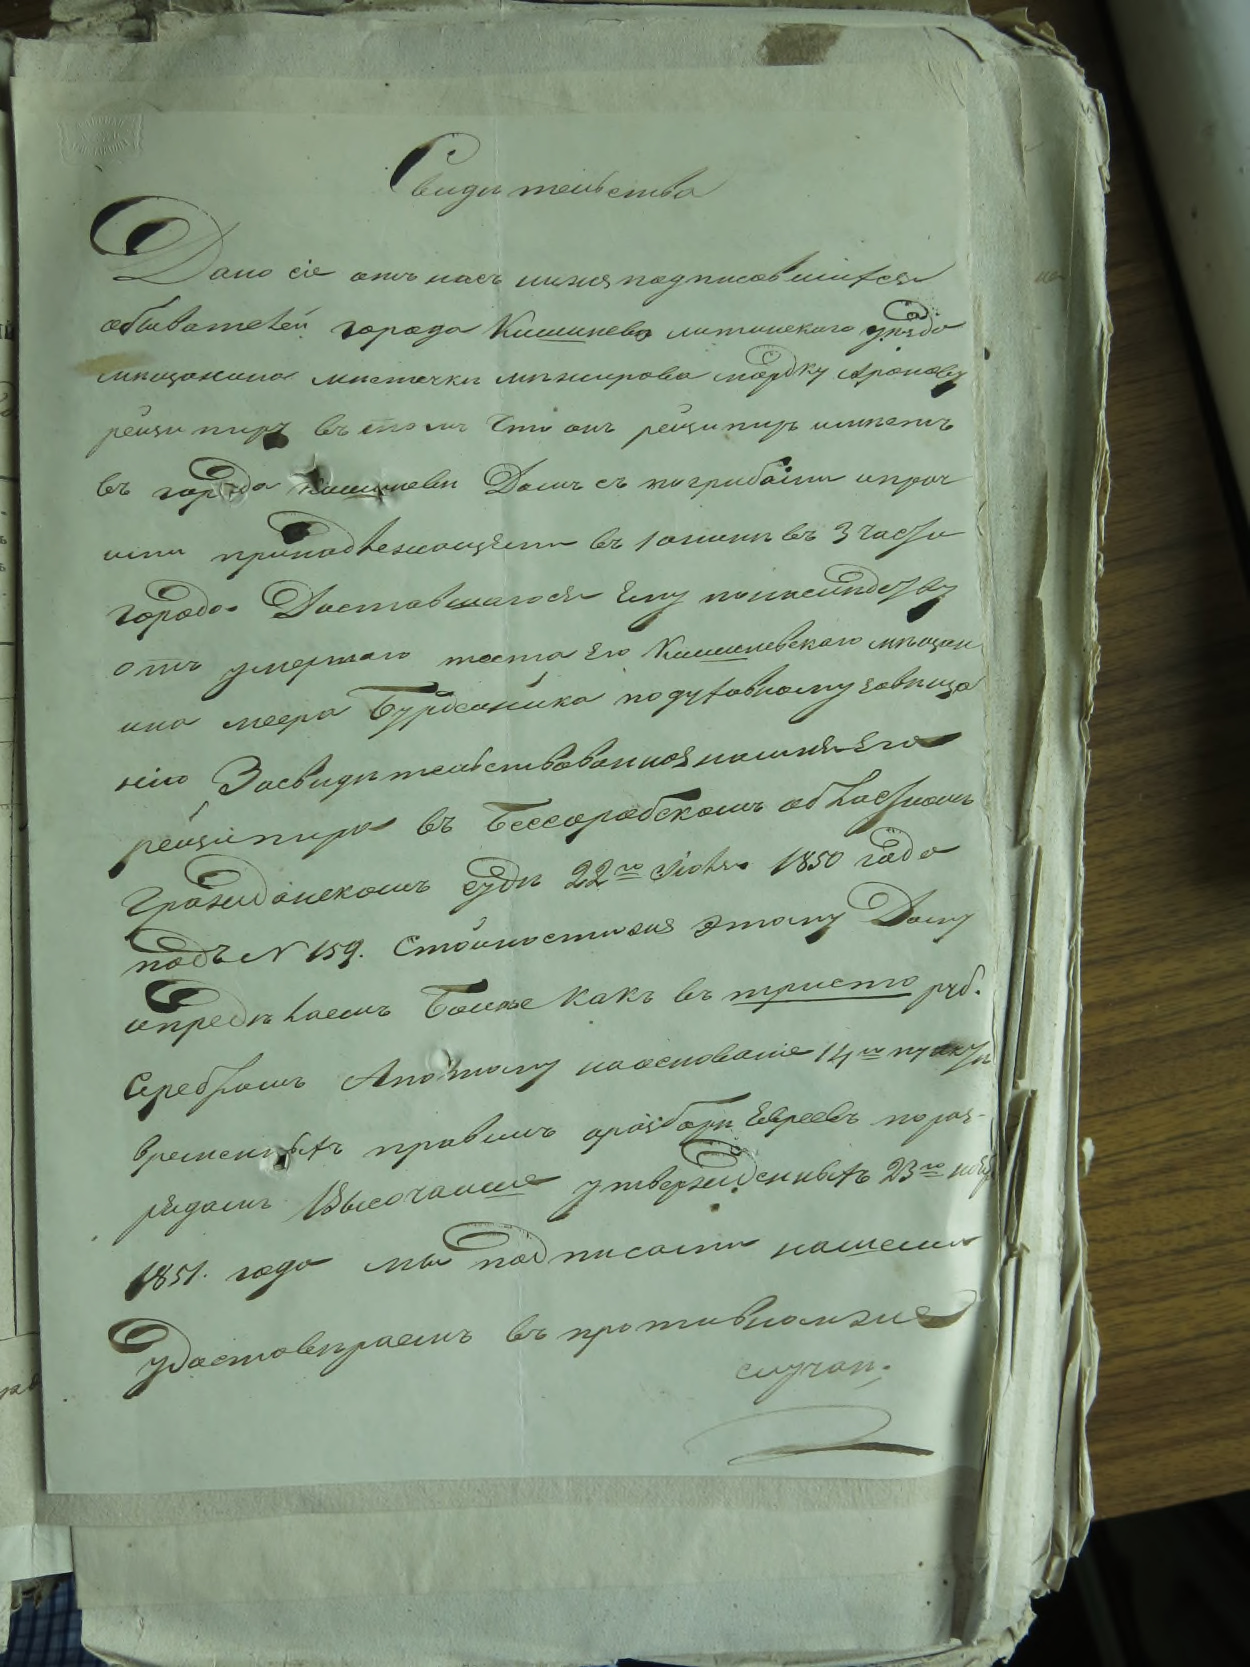 Свидѣтельство
Дано сіе отъ насъ нижеподписавшихся
обывателей города Кишинева литинскаго уѣзда
мѣщанина мѣстечки межирова мордку Аронову
рейзипиру въ томъ что онъ рейзипиръ имѣетъ
въ города Кишиневи Домъ съ погрибами ипроч
ими принадлежащими въ 1 ѣ въ 3 части
города Доставшагося Ему понаслѣдству
отъ умершаго тестя Его Кишиневскаго мѣщан
ина меера подуховному завѣща
нію Засвидѣтельствованноя наимя Его
рейзипира въ Бессарабскомъ областномъ
гражданскомъ судѣ 22го 1850 года
подъ N 159. Стоимостиже этому Дому
опредѣлаемъ Больже какъ въ тристо руб.
Серебромъ Апотому наоснованіе 14го пункта
временныхъ правилъ оразборѣ Евреевъ пораз-
рядамъ Высочайше утвержденныхъ 23го нояб
1851. года мы подписами нашеми
удостовѣраемъ въ противномже
случаи;